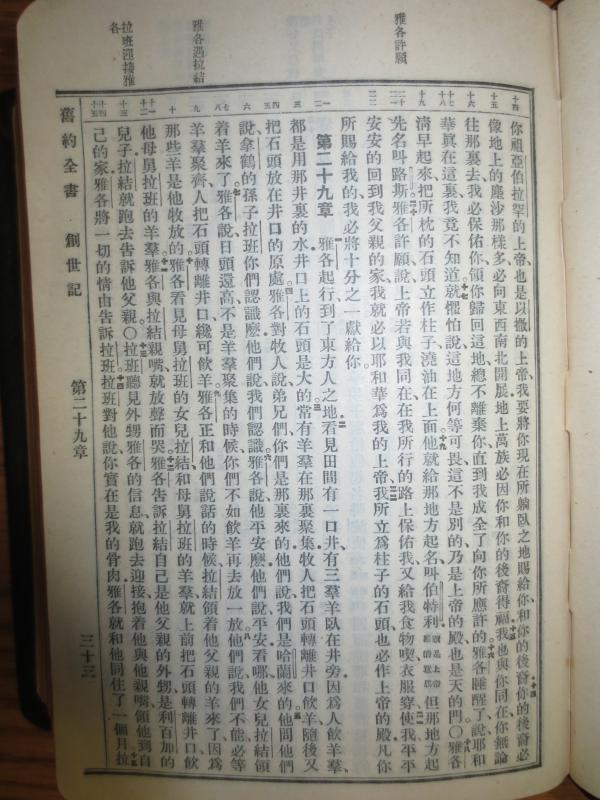 雅各許願
雅各遇拉結
拉班迎接雅各
十四
十五
十六
十七
十八
十九
二十
二十一
二十二
你祖亞伯拉罕的上帝也是以撒的上帝我要將你現在所躺臥之地賜給你和你的後裔你的後裔必
像地上的塵沙那樣多必向東西南北開展地上萬族必因你和你的後裔得福我也與你同在你無論
往那裏去我必保佑你領你歸回這地總不離棄你直到我成全了向你所應許的雅各睡醒了說耶和
華眞在這裏我竟不知道就懼怕說這地方何等可畏這不是別的乃是上帝的殿也是天的門○雅各
淸早起來把所枕的石頭立作柱子澆油在上面他就給那地方起名叫伯特利就是上帝殿的意思但那地方起
先名叫路斯雅各許願說上帝若與我同在在我所行的路上保佑我又給我食物喫衣服穿使我平平
安安的回到我父親的家我就必以耶和華爲我的上帝我所立爲柱子的石頭也必作上帝的殿凡你
所賜給我的我必將十分之一獻給你
第二十九章 雅各起行到了東方人之地看見田間有一口井有三羣羊臥在井旁因爲人飮羊羣
都是用那井裏的水井口上的石頭是大的常有羊羣在那裏聚集牧人把石頭轉離井口飮羊隨後又
把石頭放在井口的原處雅各對牧人說弟兄們你們是那裏來的他們說我們是哈蘭來的他問他們
說拿鶴的孫子拉班你們認識麽他們說我們認識雅各說他平安麽他們說平安看哪他女兒拉結領
着羊來了雅各說日頭還高不是羊羣聚集的時候你們不如飮羊再去放一放他們說我們不能必等
羊羣聚齊人把石頭轉離井口纔可飮羊雅各正和他們說話的時候拉結領着他父親的羊來了因爲
那些羊是他牧放的雅各看見母舅拉班的女兒拉結和母舅拉班的羊羣就上前把石頭轉離井口飮
他母舅拉班的羊羣雅各與拉結親嘴就放聲而哭雅各吿訴拉結自己是他父親的外甥是利百加的
兒子拉結就跑去吿訴他父親○拉班聽見外甥雅各的信息就跑去迎接抱着他與他親嘴領他到自
己的家雅各將一切的情由吿訴拉班拉班對他說你實在是我的骨肉雅各就和他同住了一個月拉
舊約全書 創世記 第二十九章 三十三